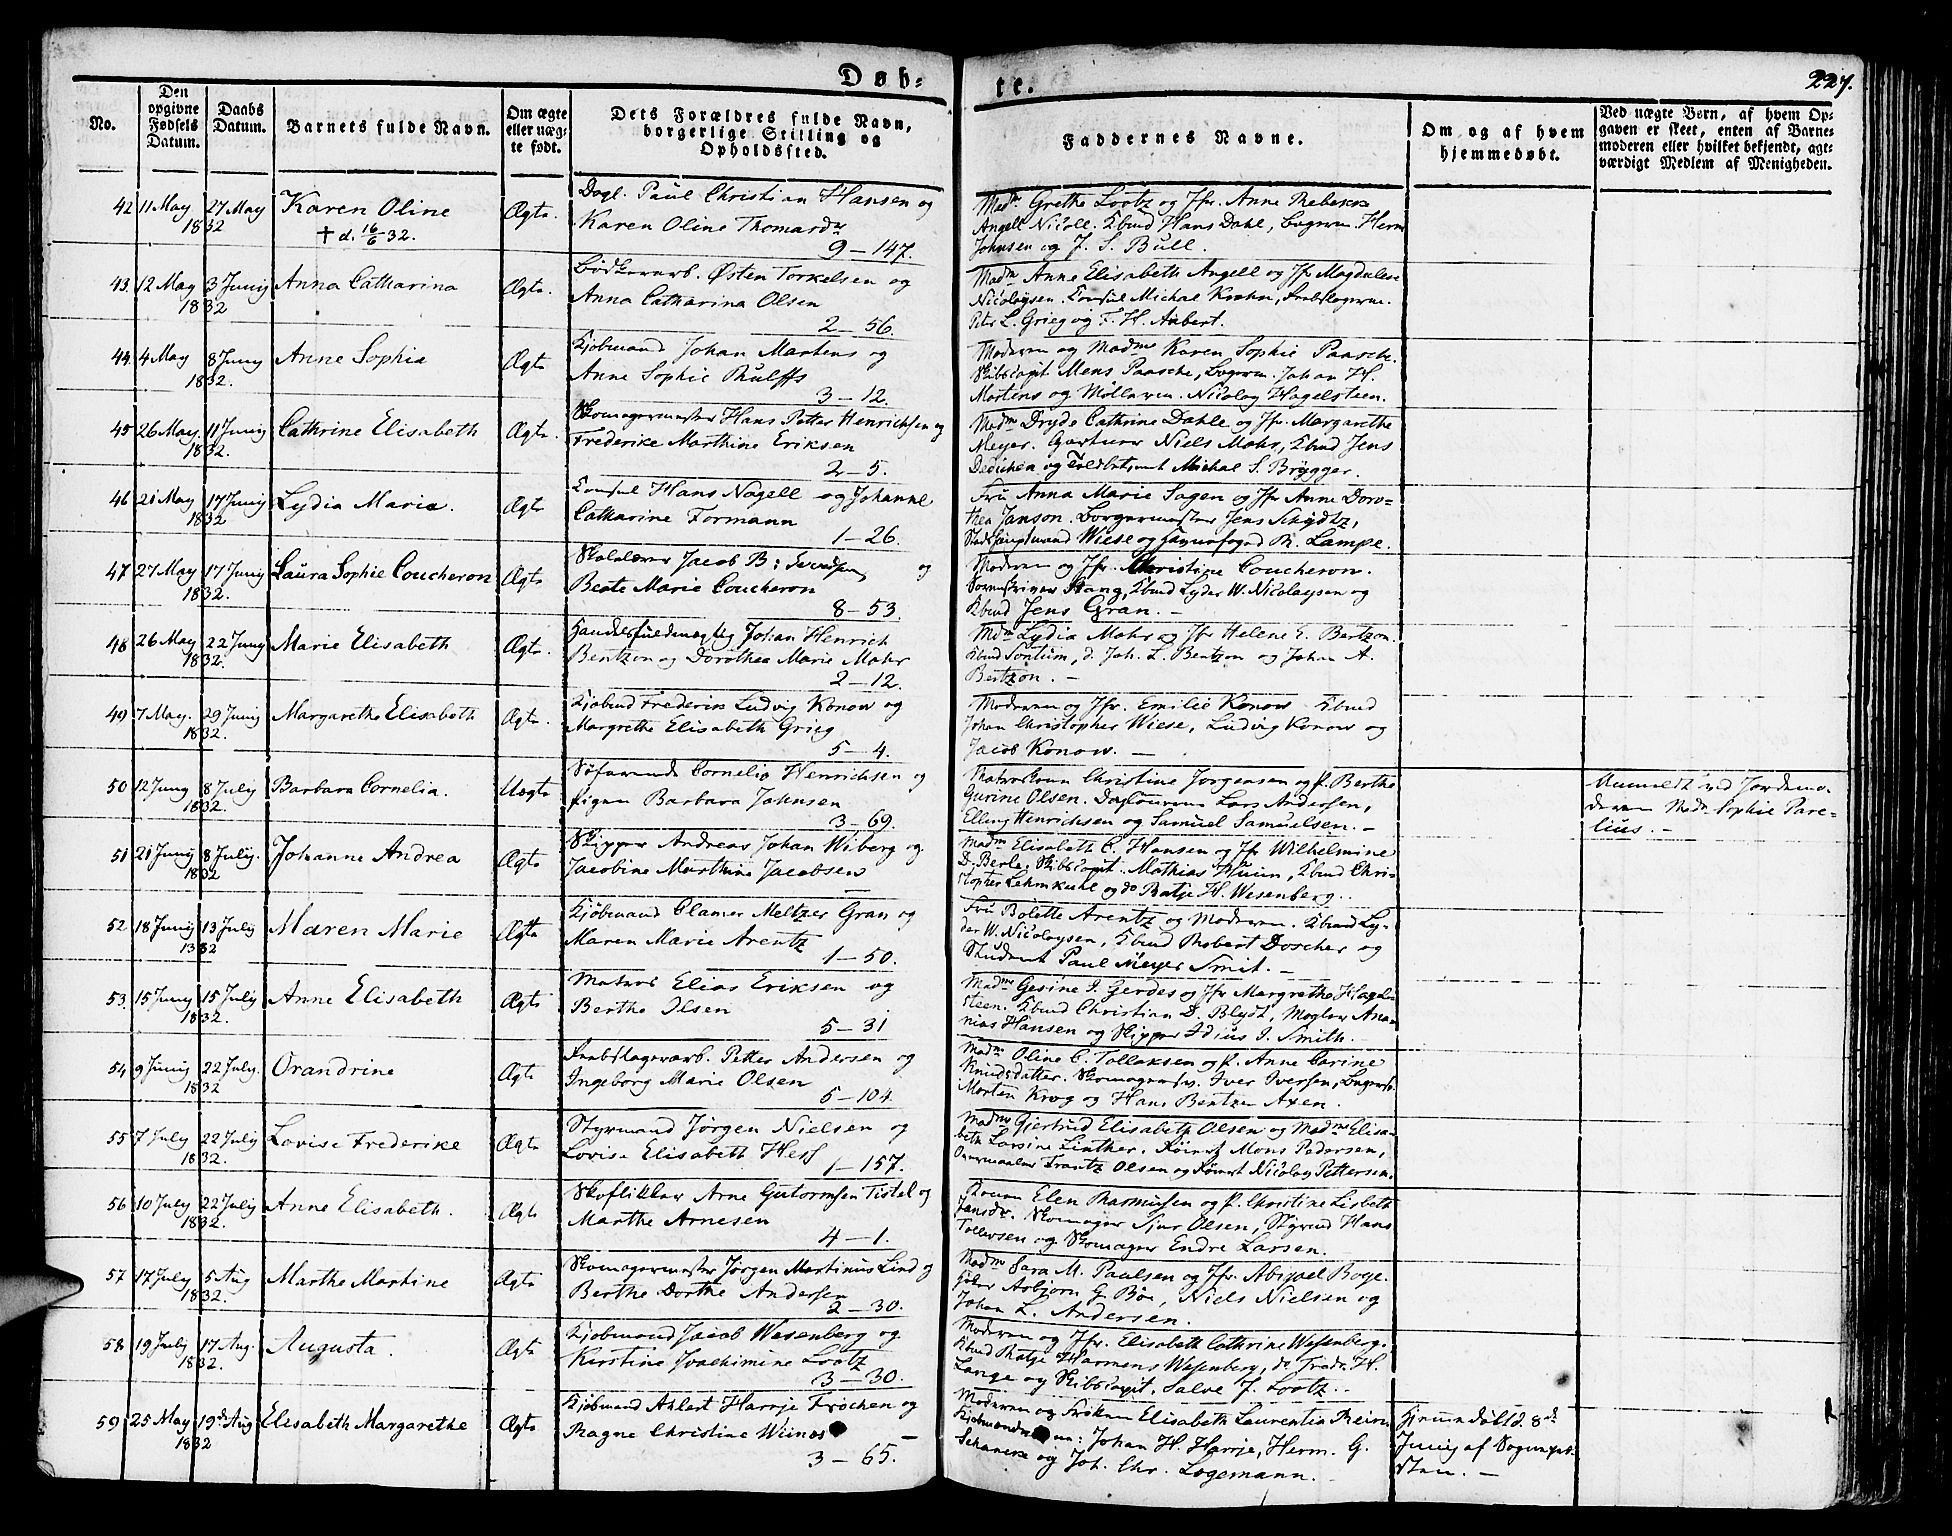 Døb=
te.
227.
No.
Den opgivne Fødsels Datum.
Daabs Datum.
Barnets fulde Navn.
Om ægte eller uæg- te født.
Dets Forældres fulde Navn, borgerlige Stilling og Opholdssted.
Faddernes Navne.
Om og af hvem hjemmedøbt.
Ved uægte Børn, af hvem Op- gaven er skeet, enten af Barne- moderen eller hvilket bekjendt, agt- værdigt Medlem af Menigheden.
42 11 May 27 May 1832 Karen Oline Ægte
† d. 16/6 32.
Paul Christian Hansen og
Karen Oline Thomasdr
9 — 147.
Madm Grethe Lootz og Jfr. Anne Rebekka
Angell Nicoll. Kbmd Hans Dahl, Herm
Johnsen og J. S. Bull.
43. 12 May 3 Juny 1832 Anna Catharina Ægte.
Østen Torkelsen og
Anna Catharina Olsen
2 — 56.
Madm Anne Elisabeth Angell og Jfr Magdalene
Nicolaysen. Consul Michal Krohn,
Peter L. Grieg og F. H. Aubert.
44. 4 May 8 Juny 1832. Anne Sophia Ægte
Kjøbmand Johan Martens og
Anne Sophie Rulffs
3 — 12.
Moderen og Madme Karen Sophie Paasche.
Skibscapit Mens Paasche, Johan H.
Martens og Nicolay Hagelsteen.
45 26 May. 11 Juny 1832. Cathrine Elisabeth Ægte.
Skomagermester Hans Petter Henrichsen og
Frederike Marthine Eriksen
2 — 5.
Madm Dryde Cathrine Dahle og Jfr. Margarethe
Meyer. Gartner Niels Mohr, Kbmd Jens
Dedichen og Michal S. Brygger.
46 21 May 17 Juny 1832 Lydia Maria. Ægte
Consul Hans Nagell og Johanne
Catharine Formann
1 — 26.
Fru Anna Marie Sagen og Jfr Anne Doro-
thea Janson. Borgermester Jens Schydtz,
Wiese og R. Lampe.
47 27 May 17 Juny 1832. Laura Sophie Coucheron Ægte
Skolelærer Jacob B: Svendsen og
Beate Marie Coucheron
8 — 53.
Moderen og Jfr. Christine Coucheron.
Sorenskriver Stang, Kbmd Lyder W. Nicolaysen og
Kbmd Jens Gran. —
48 26 May 22 Juny 1832. Marie Elisabeth Ægte.
Handelsfuldmægtig Johan Henrich
Bentzon og Dorothea Marie Mohr
2 — 12.
Mdm Lydia Mohr og Jfr Helene E. Bertzon.
Kbmd Sontum, d. Joh. L. Bentzon og Johan A.
Bentzon. —
49 7 May. 29 Juny 1832. Margarethe Elisabeth Ægte.
Kjøbmd Frederik Ludvig Konow og
Margrethe Elisabeth Grieg
5 — 4.
Moderen og Jfr. Emilie Konow Kbmd
Johan Christopher Wiese, Ludvig Konow og
Jacob Konow. —
50 12 Juny 8 July 1832. Barbara Cornelia. Uægte
Søfarende Cornelio Henrichsen og
Pigen Barbara Johnsen
3 — 69.
Christine Jørgensen og P. Berthe
Gurine Olsen. Lars Andersen,
Elling Henrichsen og Samuel Samuelsen. —
Anmeldt ved Jordemo-
deren Mdm Sophie Pare-
lius. —
51 21 Juny 8 July. 1832 Johanne Andrea Ægte
Skipper Andreas Johan Wiberg og
Jacobine Marthine Jacobsen
—
Madm Elisabeth C. Hansen og Jfr Wilhelmine
D. Berle. Skibscapit. Mathias Kbmd Chri-
stopher Lehmkuhl og do Ratje H. Wesenberg.
52 18 Juny 13 July 1832 Maren Marie Ægte
Kjøbmand Clamer Meltzer Gran og
Maren Marie Arentz
1 — 50.
Fru Bolette Arentz og Moderen. Kbmd Ly-
der W. Nicolaysen, Kbmd Robert Doscher og
Student Paul Meyer Smit. —
53. 15 Juny 15 July 1832. Anne Elisabeth Ægte
Matros Elias Eriksen og
Berthe Olsen
5 — 31
Madme Gesine I. Gerdes og Jfr Margrethe Hagel-
steen. Kbmd Christian D. Blydt, Mægler Ana-
nias Hansen og Skipper Idius I. Smith.
54 9 Juny 22 July. 1832 Orandrine Ægte
Petter Andersen og
Ingeborg Marie Olsen
5 — 104.
Madm Oline C. Tollaksen og P. Anne Carine
Knudsdatter. Skomagersv. Iver Iversen,
Morten Krog og Hans Bentzen Axen.
55 7 July 22 July 1832. Lovise Frederike Ægte
Styrmand Jørgen Nielsen og
Lovise Elisabeth Hess
1 — 157.
Madme Gjertrud Elisabeth Olsen og Madme Elisa-
beth Larsine Linther. Mons Pedersen,
Frantz Olsen og Nicolay Pettersen.
56 10 July 22 July 1832. Anne Elisabeth. Ægte
Skoflikker Arne Gutormsen Tistel og
Marthe Arnesen
4 — 1.
Konen Elen Rasmusen og P. Christine Lisbeth
Jansdr. Skomager Siur Olsen, Styrmd Hans
Tollevsen og Skomager Endre Larsen.
57 17 July 5 Aug 1832. Marthe Martine Ægte
Skomagermester Jørgen Martinus Lind og
Berthe Dorthe Andersen
2 — 30.
Madme Sara M. Paulsen og Jfr. Abigael Boge.
Asbjørn G. Bøe, Niels Nielsen og
Johan L. Andersen.
58 19 July 17 Aug. 1832. Augusta. Ægte
Kjøbmand Jacob Wesenberg og
Kirstine Joachimine Lootz
3 — 30.
Moderen og Jfr. Elisabeth Cathrine Wesenberg.
Kbmd Ratje Harmens Wesenberg, do Fredr. H.
Lange og Skibscapit. Salve J. Lootz.
59 25 May 19de Aug 1832 Elisabeth Margarethe Ægte
Kjøbmand Ahlert Harrje Frøchen og
Ragne Christine Weinås —
3 — 65.
Moderen og Frøken Elisabeth Laurentia
Johan H. Harrje, Herm. G.
Schancke og Joh. Chr. Logemann.
Hjemmedøbt d. 8de
Juny af Sogneprè-
sten. —